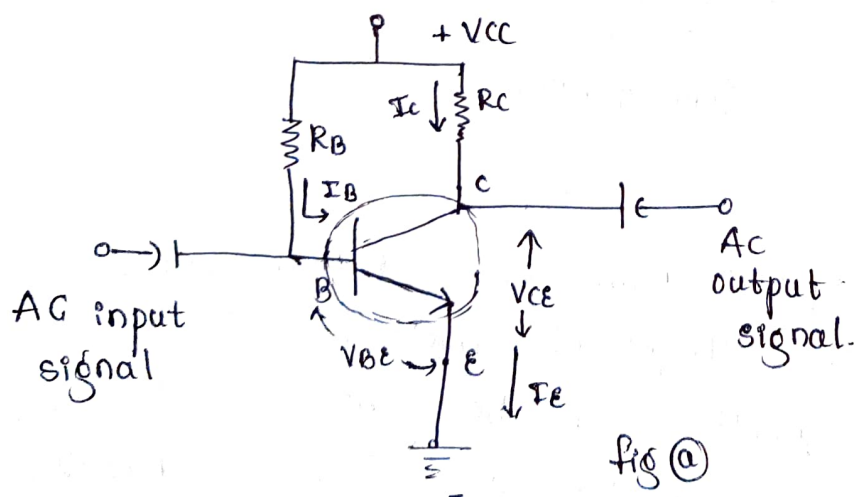 + VCC
Ic
RC
RB
IB
C
B
AC input
signal
VBE
E
VCE
IE
AC
output
signal.
fig ⓐ